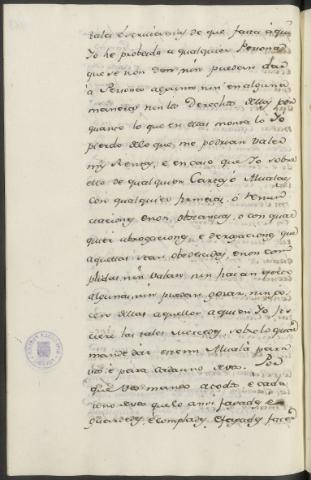 tales escrivanias de que fasta aqui
Yo he probeido a qualquier Persona
que se non den, nin puedan dar
à Persona alguna nin en alguna
manera, nin los Derechos dellas por
quanto lo que en ellas monta lo Yo
pierdo dello que me podrian valer
mis Rentas, e en caso que Yo sobre
ello dè qualquier Carta, ò Alvalaes
con qualquier firmeza, ò
e non obstancias, o con qual
quier abrogacion, e derogacion, que
aquellas sean obedecidas, e non com
plidas, nin valan, nin hayan efecto
alguno, nin puedan gozar, nin go
cen dellas aquellos aquien Yo fi
ciere las tales mercedes, sobre lo qual
mandè dàr este mi Alvalà para
vos, è para cada uno de vos. Por
que vos mando à todos, e cada
uno de vos que lo ansi fagades, e
guardedes, e complades, e fagades facer